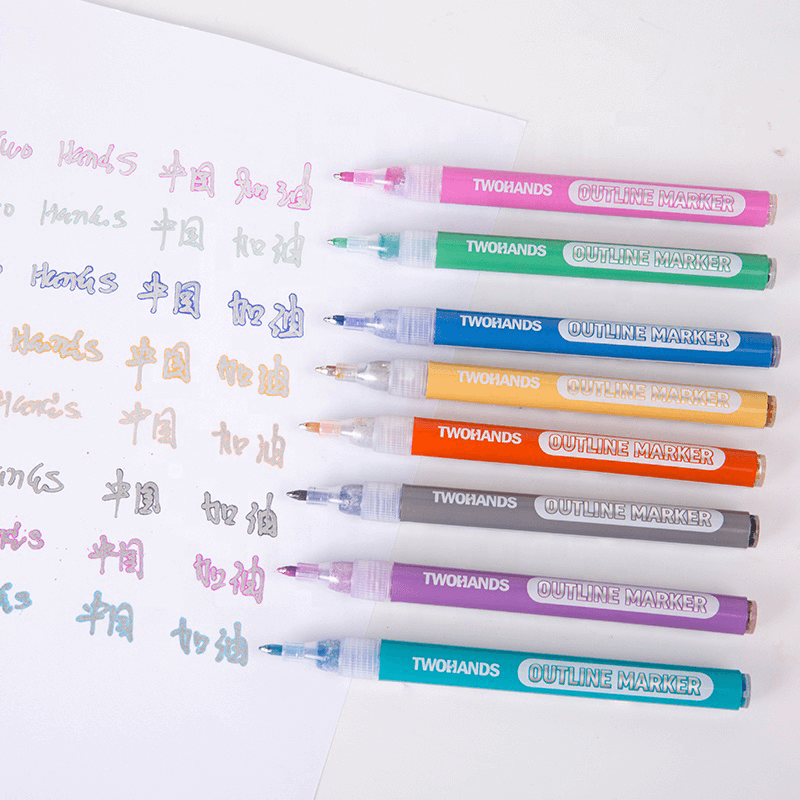 Two Hands 中国 加油
TWOHANDS OUTLINE MARKER
wo Hands 中国 加油
TWOHANDS OUTLINE MARKER
o Hands 中国 加油
TWOHANDS OUTLINE MARKER
Hands 中国 加油
TWOHANDS OUTLINE MARKER
Hands 中国 加油
TWOHANDS OUTLINE MARKER
ands 中国 加油
TWOHANDS OUTLINE MARKER
nds 中国 加油
TWOHANDS OUTLINE MARKER
ds 中国 加油
TWOHANDS OUTLINE MARKER